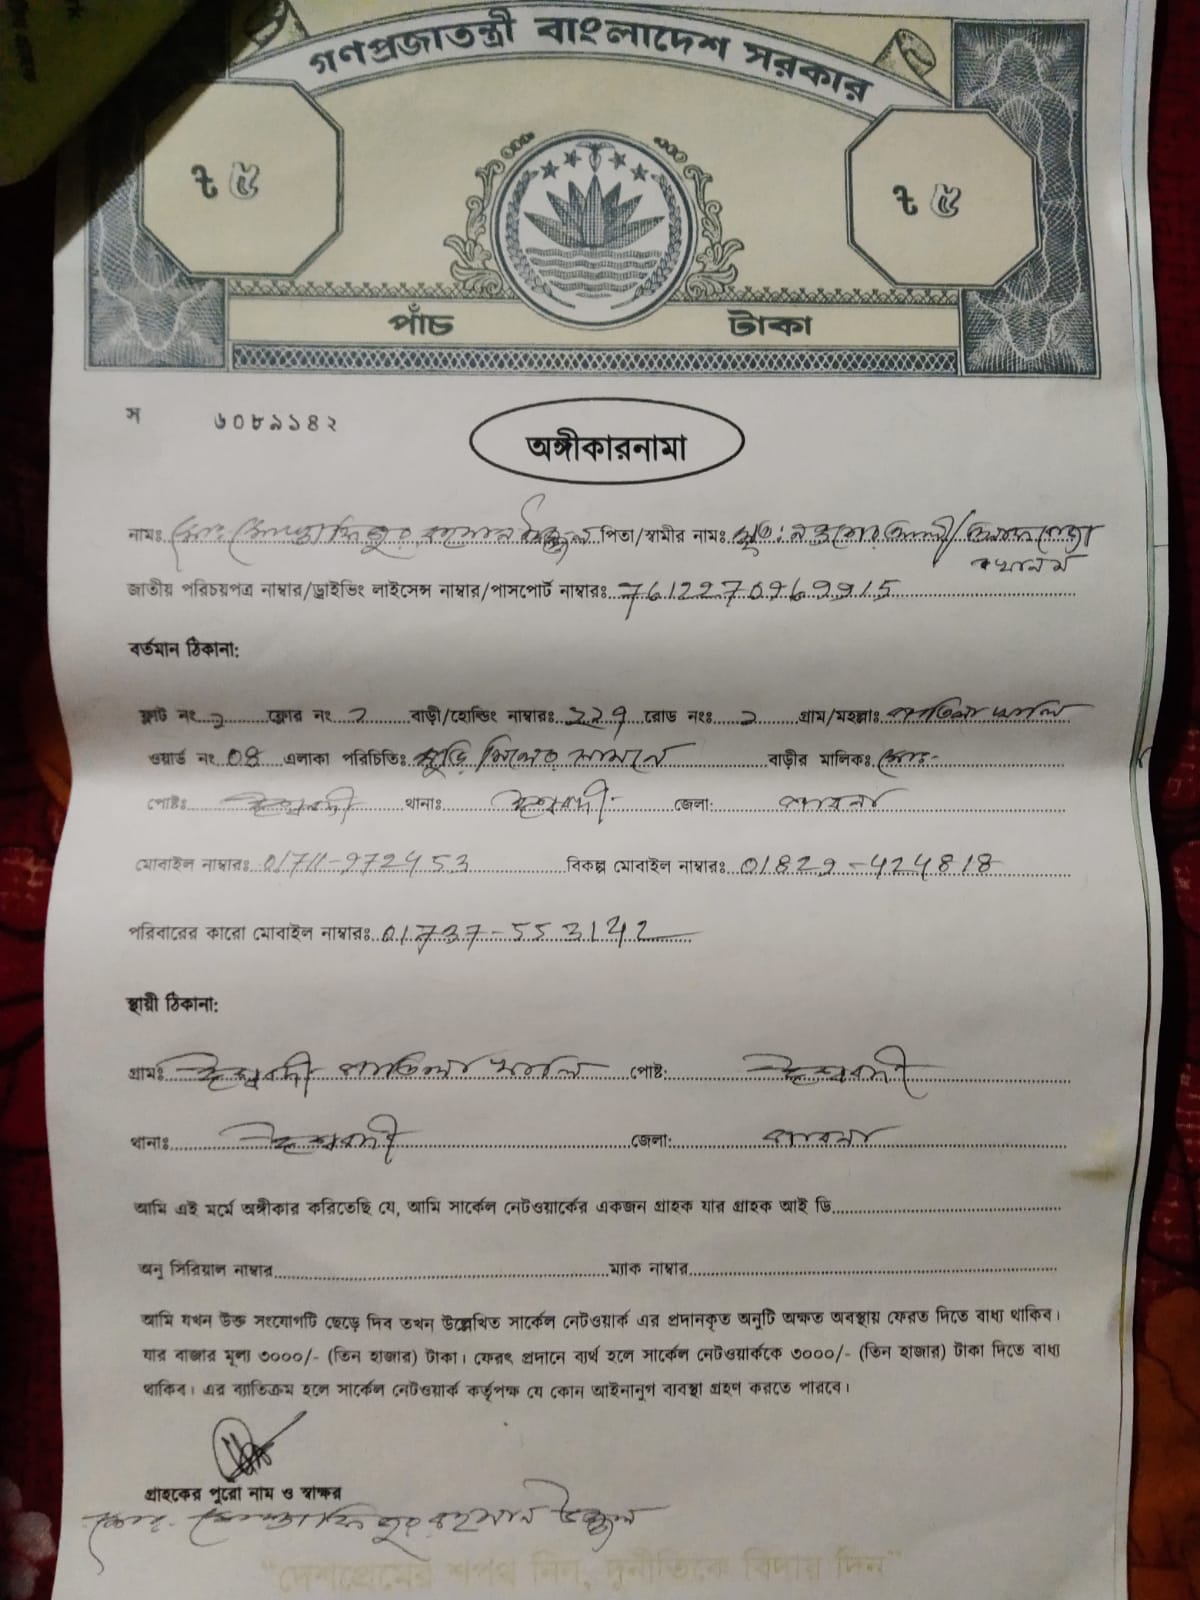 গণপ্রজাতন্ত্রী বাংলাদেশ সরকার
ট ৫ ট ৫
পাঁচ টাকা
স ৬০৮৯১৪২
অঙ্গীকারনামা
নামঃ মোঃ মোস্তাফিজুর রহমান উজ্জ্বল পিতা/স্বামীর নামঃ মৃত:
জাতীয় পরিচয়পত্র নাম্বার/ড্রাইভিং লাইসেন্স নাম্বার/পাসপোর্ট নাম্বারঃ 7612270969915
বর্তমান ঠিকানা:
ফ্লাট নং ফ্লোর নং ২ বাড়ী/হোল্ডিং নাম্বারঃ রোড নংঃ গ্রাম/মহল্লাঃ
ওয়ার্ড নং 04 এলাকা পরিচিতিঃ মুড়ি মিলের সামনে বাড়ীর মালিকঃ মোঃ-
পোষ্টঃ ঈশ্বরদী থানাঃ ঈশ্বরদী জেলা: পাবনা
মোবাইল নাম্বারঃ 01711-972453 বিকল্প মোবাইল নাম্বারঃ 01829-424818
পরিবারের কারো মোবাইল নাম্বারঃ 01737-553142
স্থায়ী ঠিকানা:
গ্রামঃ ঈশ্বরদী পোষ্ট: ঈশ্বরদী
থানাঃ ঈশ্বরদী জেলা: পাবনা
আমি এই মর্মে অঙ্গীকার করিতেছি যে, আমি সার্কেল নেটওয়ার্কের একজন গ্রাহক যার গ্রাহক আই ডি
অনু সিরিয়াল নাম্বার ম্যাক নাম্বার
আমি যখন উক্ত সংযোগটি ছেড়ে দিব তখন উল্লেখিত সার্কেল নেটওয়ার্ক এর প্রদানকৃত অনুটি অক্ষত অবস্থায় ফেরত দিতে বাধ্য থাকিব।
যার বাজার মূল্য ৩০০০/- (তিন হাজার) টাকা। ফেরৎ প্রদানে ব্যর্থ হলে সার্কেল নেটওয়ার্ককে ৩০০০/- (তিন হাজার) টাকা দিতে বাধ্য
থাকিব। এর ব্যতিক্রম হলে সার্কেল নেটওয়ার্ক কর্তৃপক্ষ যে কোন আইনানুগ ব্যবস্থা গ্রহণ করতে পারবে।
গ্রাহকের পুরো নাম ও স্বাক্ষর
মোঃ মোস্তাফিজুর রহমান উজ্জ্বল
“দেশপ্রেমের শপথ নিন, দুর্নীতিকে বিদায় দিন”